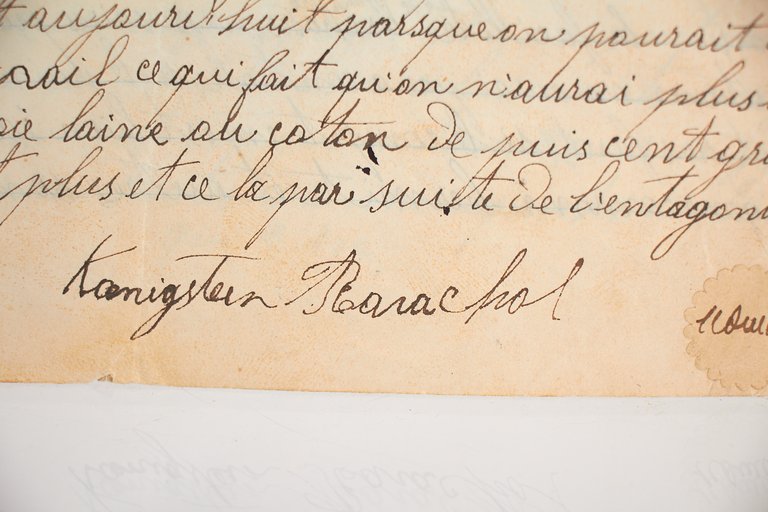 aujourd'huit parsque on pourait
ce qui fait qu'on n'aurai plus
laine ou coton de puis cent gra
plus et ce la par suite de l'entagoni
Kœnigstein Ravachol